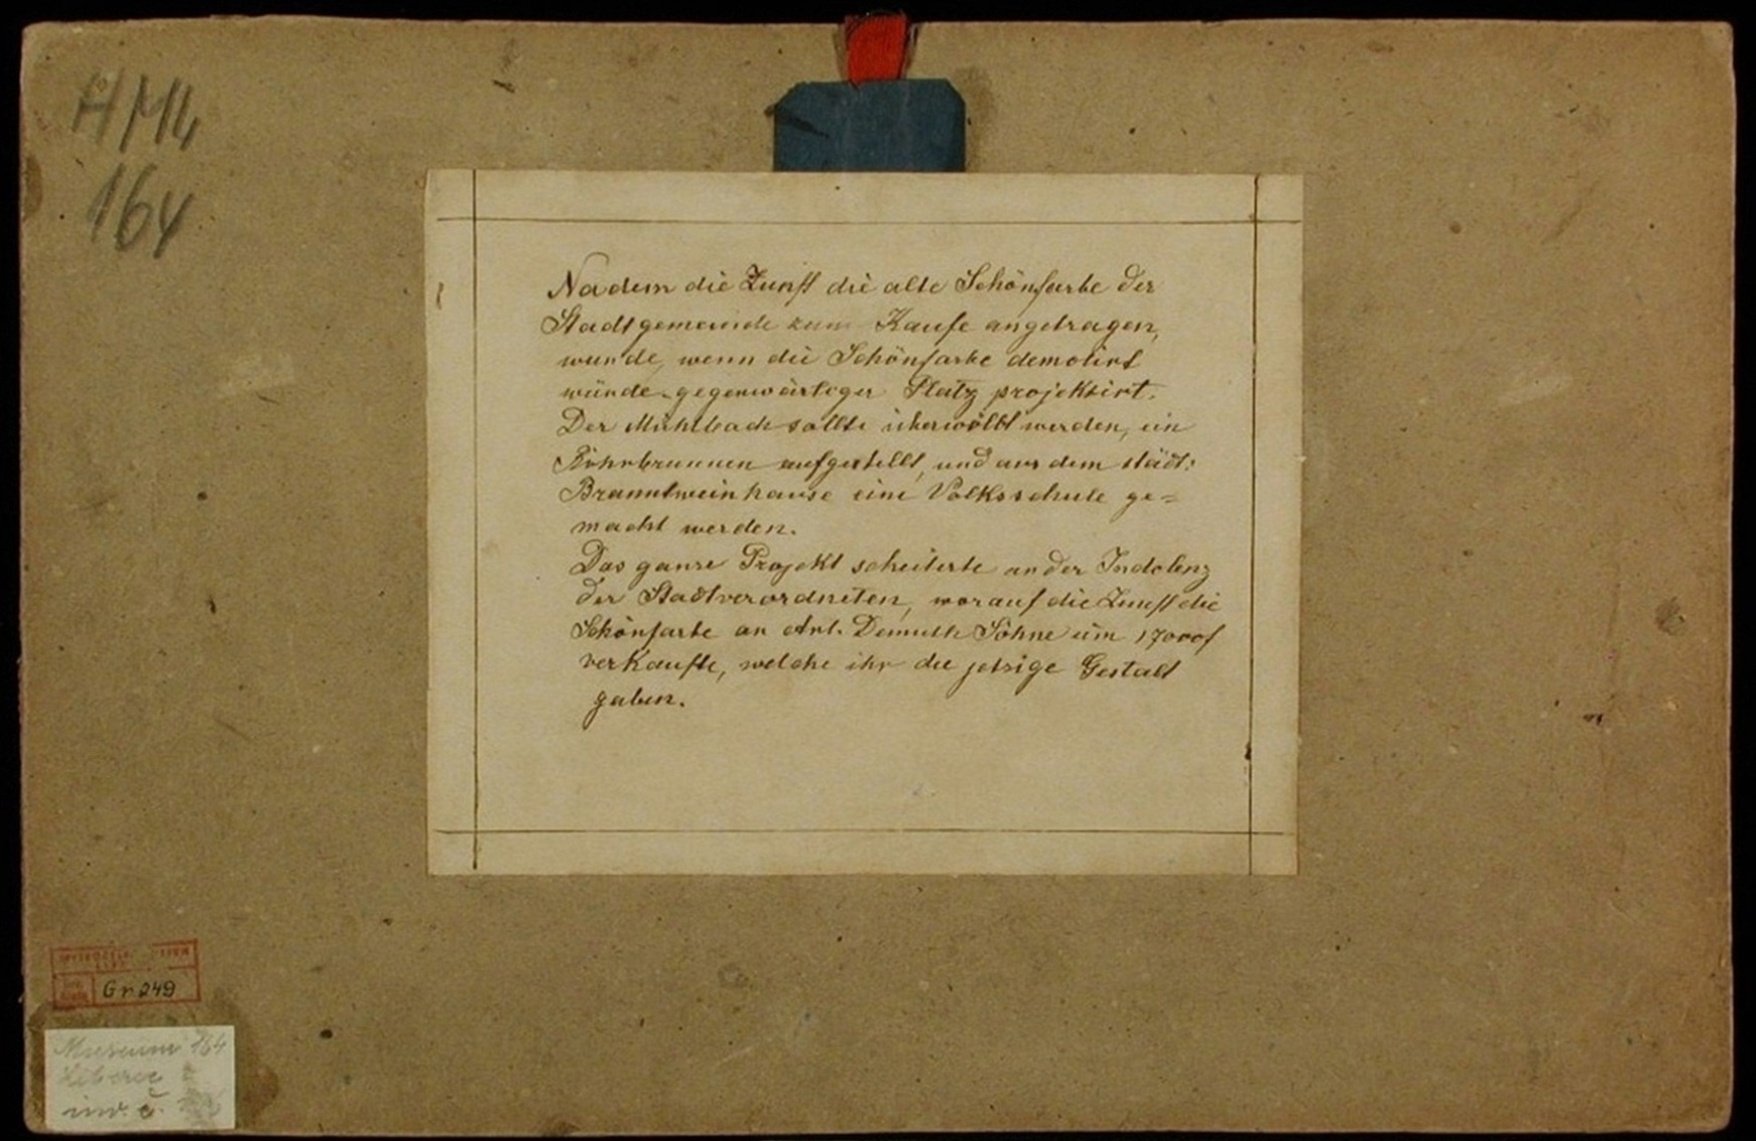 HML
164
Nadem die Zunft die alte Schönfarbe der
Stadtgemeinde zum Kaufe angetragen,
wurde, wenn die Schönfarbe demolirt
würde gegenwärtiger Platz projektirt.
Der Mühlbach sollte überwölbt werden, ein
Röhrbrunnen aufgestellt, und aus dem städt:
Branntweinhause eine Volksschule ge=
macht werden.
Das ganze Projekt scheiterte an der Indolenz
der Stadtverordneten, worauf die Zunft die
Schönfarbe an Ant. Demuth Söhne um 17000f
verkaufte, welche ihr die jetzige Gestalt
gaben.
Gr 249
Museum 164
Liberec
inv. č.